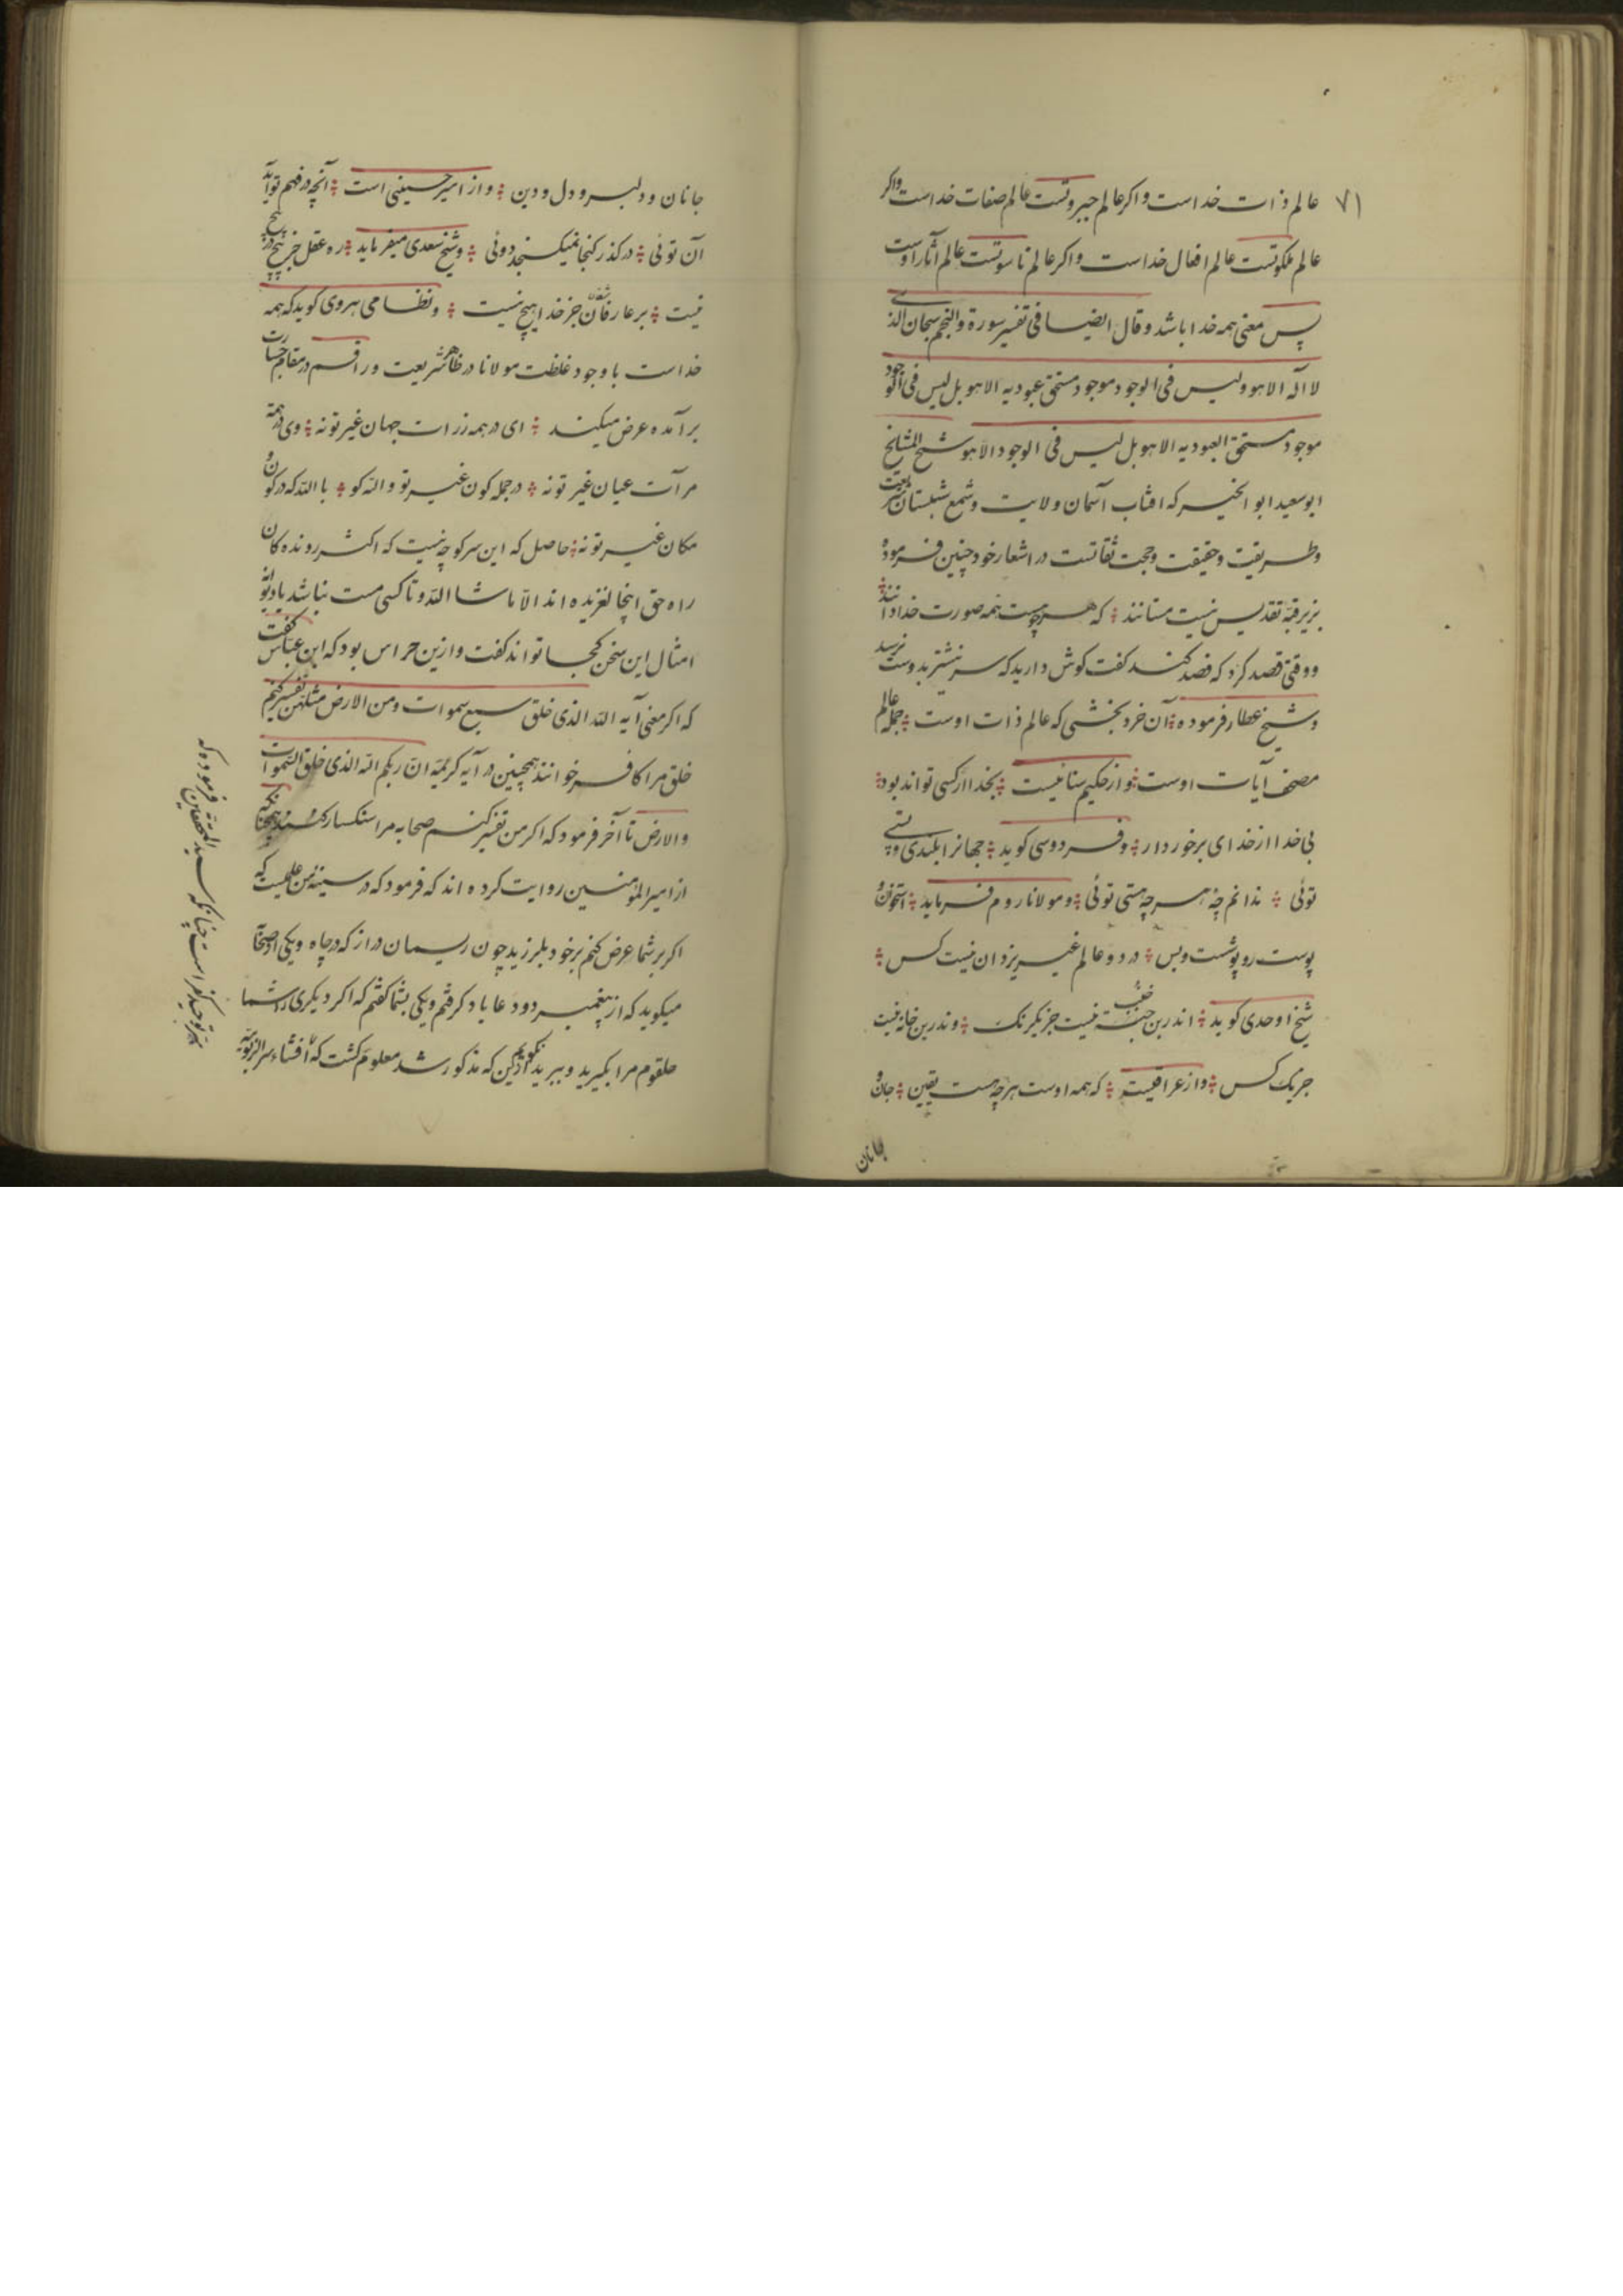 ۷۱
عالم ذات خداست و اکر عالم جبروتست عالم صفات خداست واکر
عالم ملکوتست عالم افعال خداست و اکر عالم ناسوتست عالم آثار اوست
پس معنی همه خدا باشد و قال ایضا فی تفسیر سورة والنجم سبحان الذی
لا اله الا هو و لیس فی الوجود موجود مستحق عبودیه الا هو بل لیس فی الوجود
موجود مستحق العبودیه الا هو بل لیس فی الوجود الا هو شیخ المشایخ
ابو سعید ابو الخیر که افتاب آسمان ولایت و شمع شبستان شریعت
وطریقت و حقیقت و حجت ثقاتست در اشعار خود چنین فرموده
تقدیس نیست مستانند که هرچه هست همه صورت خدا دانند
و وقتی قصد کرد که فصد کنند کفت کوش دارید که سر نشتر بدوست نرسد
و شیخ عطار فرموده آن خرد بخشی که عالم ذات اوست جمله عالم
مصحف آیات اوست و از حکیم سنائیست بخدا ار کسی تواند بود
بی خدا از خدای برخوردار و فردوسی کوید جهانرا بلندی و پستی
توئی ندانم چه هرچه هستی توئی و مولانا روم فرماید استخوان و
پوست رو پوشست و بس در دو عالم غیر یزدان نیست کس
شیخ اوحدی کوید اندرین نیست جز یکرنک وندرین خانه نیست
جز یک کس و از عراقیست که همه اوست هرچه هست یقین جان و
جانان
جانان و دلبر و دل و دین و از امیر حسینی است آنچه در فهم تو آید
آن توئی درکذر کنجا نمیکنجد دوئی و شیخ سعدی میفرماید ره عقل جز پیچ در پیچ
نیست بر عارفان جز خدا هیچ نیست و نظامی هروی کوید که همه
خداست با وجود غلظت مولانا در ظاهر شریعت و راقم در مقام جسارت
برآمده عرض میکند ای در همه زرات جهان غیر تو نه وی در همه
مرآت عیان غیر تو نه در جمله کون غیر تو والله کو با الله که در کون و
مکان غیر تو نه حاصل که این سر کوچه نیست که اکثر رونده کان
راه حق اینجا لغزیده اند الا ما شا الله و تا کسی مست نباشد یا دیوانه
امثال این سخن کجا تواند کفت و ازین حراس بود که ابن عباس کفت
که اکر معنی آیه الله الذی خلق سبع سموات و من الارض مثلهن تفسیر کنم
خلق مرا کافر خوانند همچنین در آیه کریمه ان ربکم الله الذی خلق السموات
والارض تا آخر فرمود که اکر من تفسیر کنم صحابه مرا سنکسار کنند
از امیر المؤمنین روایت کرده اند که فرمود که در سینه من علمیست که
اکر بر شما عرض کنم بر خود بلرزید چون ریسمان دراز که در چاه و یکی از صحابه
میکوید که از پیغمبر دو دعا یاد کرفتم و یکی بشما کفتم که اکر دیکری را بشما
بکویم حلقوم مرا بکیرید و ببرید از این که مذکور شد معلوم کشت که افشاء سر الربوبیه
توحید کفر است چنانکه سید المحققین فرموده که